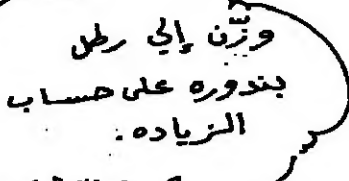 وزّن إلي رطل
بندوره على حساب
الزياده.